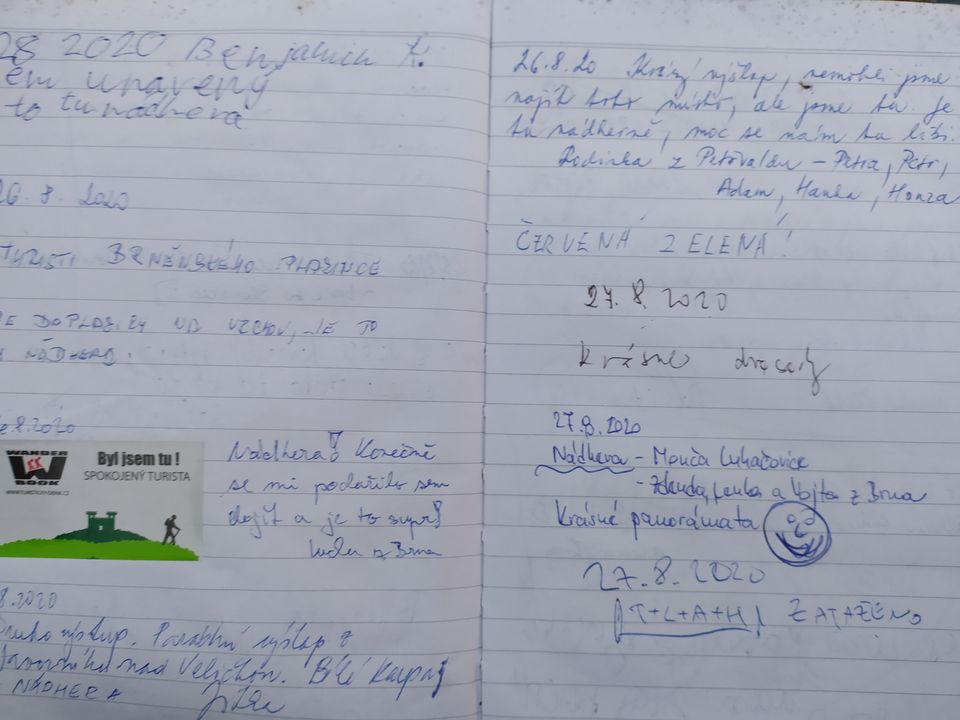 28 2020 Benjamin K.
unavený
to tu nádhera
26. 8. 2020
TURISTI BRNĚNSKÉHO PLAZINCE
SE DOPLAZILI NA VRCHOL, JE TO
NÁDHERA.
8.2020
WANDER
BOOK
WWW.TURISTICKY-DENIK.CZ
Byl jsem tu !
SPOKOJENÝ TURISTA
Nádhera! Konečně
se mi podařilo sem
dojít a je to super!
z Brna
8.2020
Druhý výstup. Parádní výšlap z
Javorníka nad Veličkou. Bílé Karpaty
NÁDHERA
26.8.20 Krásný výšlap, nemohli jsme
najít toto místo, ale jsme tu. Je
tu nádherně, moc se nám tu líbí.
Rodinka z Petřvaldu - Petra, Petr,
Adam, Hanka, Honza
ČERVENÁ ZELENÁ!
27. 8. 2020
Krásné
27.8.2020
Nádhera - Monča Luhačovice
- Zdenda, Lenka a Vojta z Brna
Krásné panorámata
27.8.2020
T+L+A+H ZATAŽENO